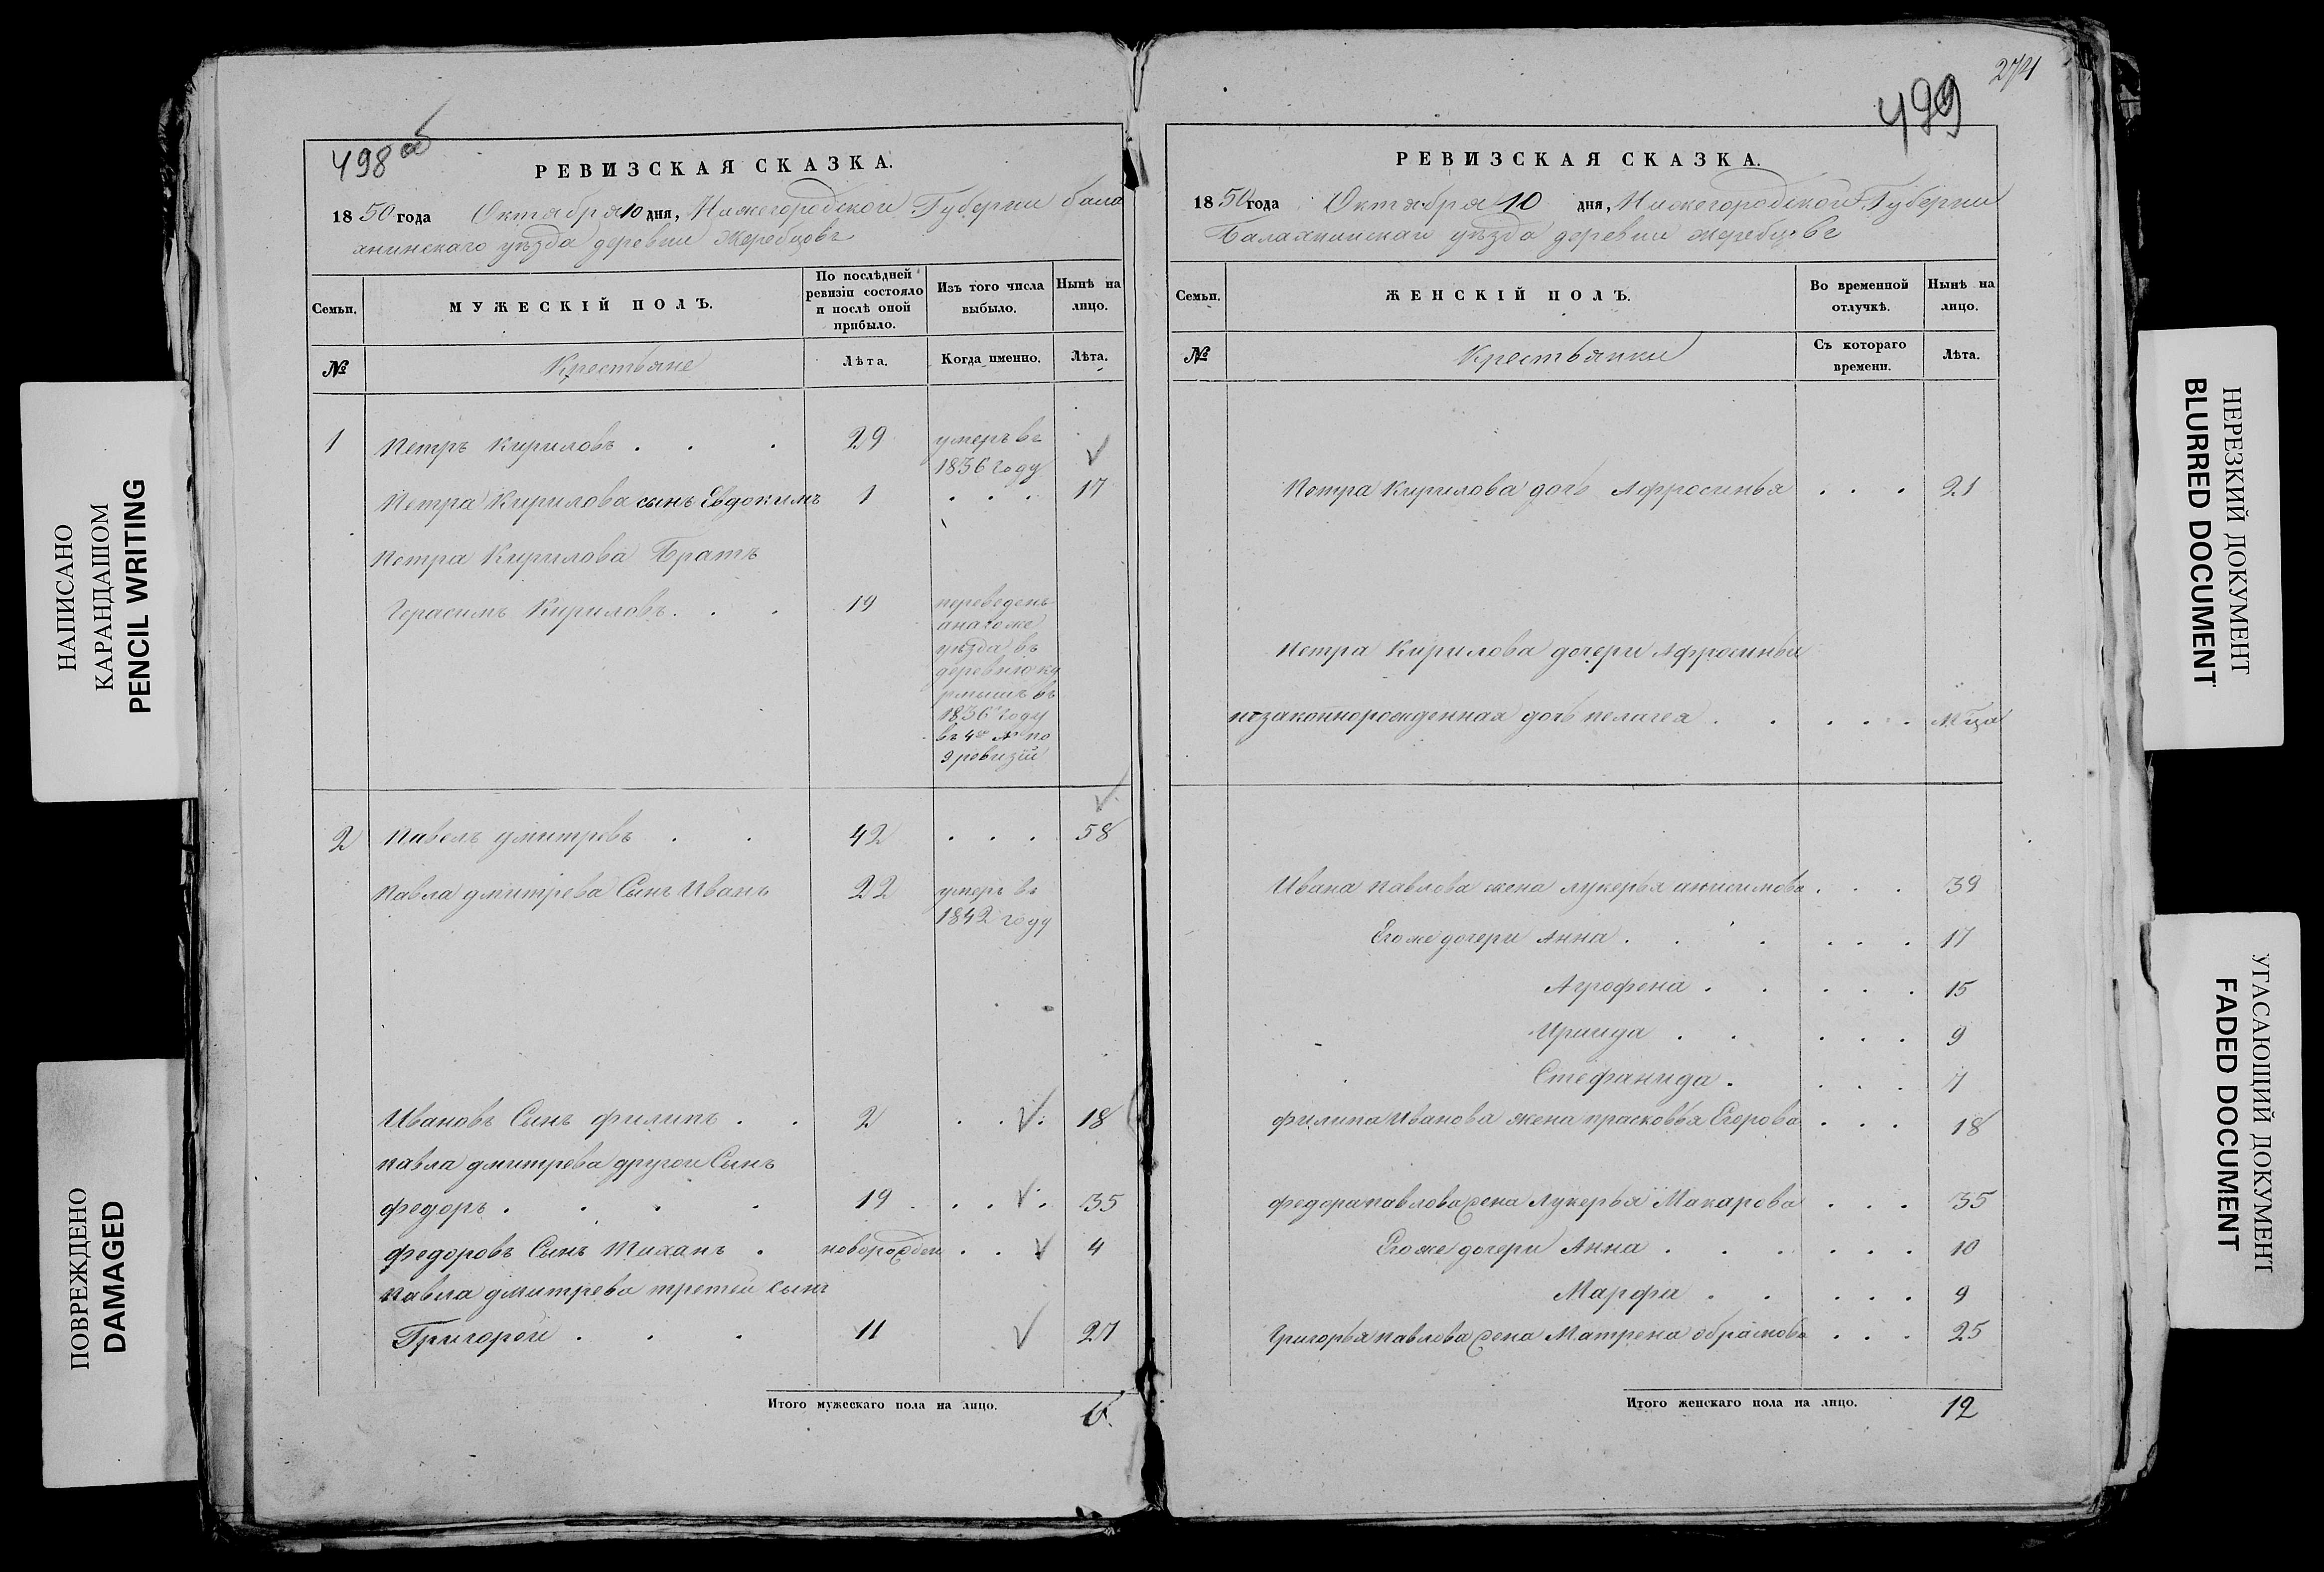 НАПИСАНО
КАРАНДАШОМ
PENCIL WRITING
ПОВРЕЖДЕНО
DAMAGED
498 об
РЕВИЗСКАЯ СКАЗКА.
1850 года Октября 10 дня, Нижегородской Губернии бала
хнинскаго уѣзда деревни Жеребцовъ
Семьи.
МУЖЕСКІЙ ПОЛЪ.
По послѣдней ревизіи состояло и послѣ оной прибыло.
Изъ того числа выбыло.
Нынѣ на лицо.
№
Крестьяне
Лѣта.
Когда именно.
Лѣта.
1 Петръ Кириловъ . . . 29 умеръ въ
1836 году
Петра Кирилова сынъ Евдокимъ 1 . . . 17
Петра Кирилова Братъ
Герасимъ Кириловъ . . . 19 переведенъ
уѣзда въ
деревню ку
рмышъ въ
1836 году
въ 4 № по
9 ревизiи
2 Павелъ дмитревъ . . 42 . . . 58
Павла дмитрева Сынъ Иванъ 22 умеръ въ
1842 году
Ивановъ Сынъ филипъ . . 2 . . . 18
павла дмитрева другои Сынъ
федоръ . . . . 19 . . . 35
федоровъ Сынъ . новорожден . . . 4
павла дмитрева третеи сынъ
Григорей . . . 11 27
Итого мужескаго пола на лицо. 6.
274
499
РЕВИЗСКАЯ СКАЗКА.
1850 года Октября 10 дня, Нижегородской Губернии
уѣзда деревни жеребцовъ
Семьи.
ЖЕНСКІЙ ПОЛЪ.
Во временной отлучкѣ.
Нынѣ на лицо.
№
Крестьянки
Съ котораго времени.
Лѣта.
Петра Кирилова дочь Афросинья . . . 21
Петра Кирилова дочери Афросиньи
незаконнорожденная дочь пелагея . . . . . Мца
Ивана павлова жена лукерья анисимова . . . 39
Егоже дочери Анна . . . . . . 17
Агрофена . . . . . 15
Ираида . . . . . 9
Стефанида . . . . 7
филипа Иванова жена прасковья Егорова . . . 18
федора павлова жена Лукерья Макарова . . . 35
Егоже дочери Анна . . . . . . 10
Марфа . . . . . 9
Григорья павлова жена Матрена обрамова . . . 25
Итого женскаго пола на лицо. 12
НЕРЕЗКИЙ ДОКУМЕНТ
BLURRED DOCUMENT
УГАСАЮЩИЙ ДОКУМЕНТ
FADED DOCUMENT